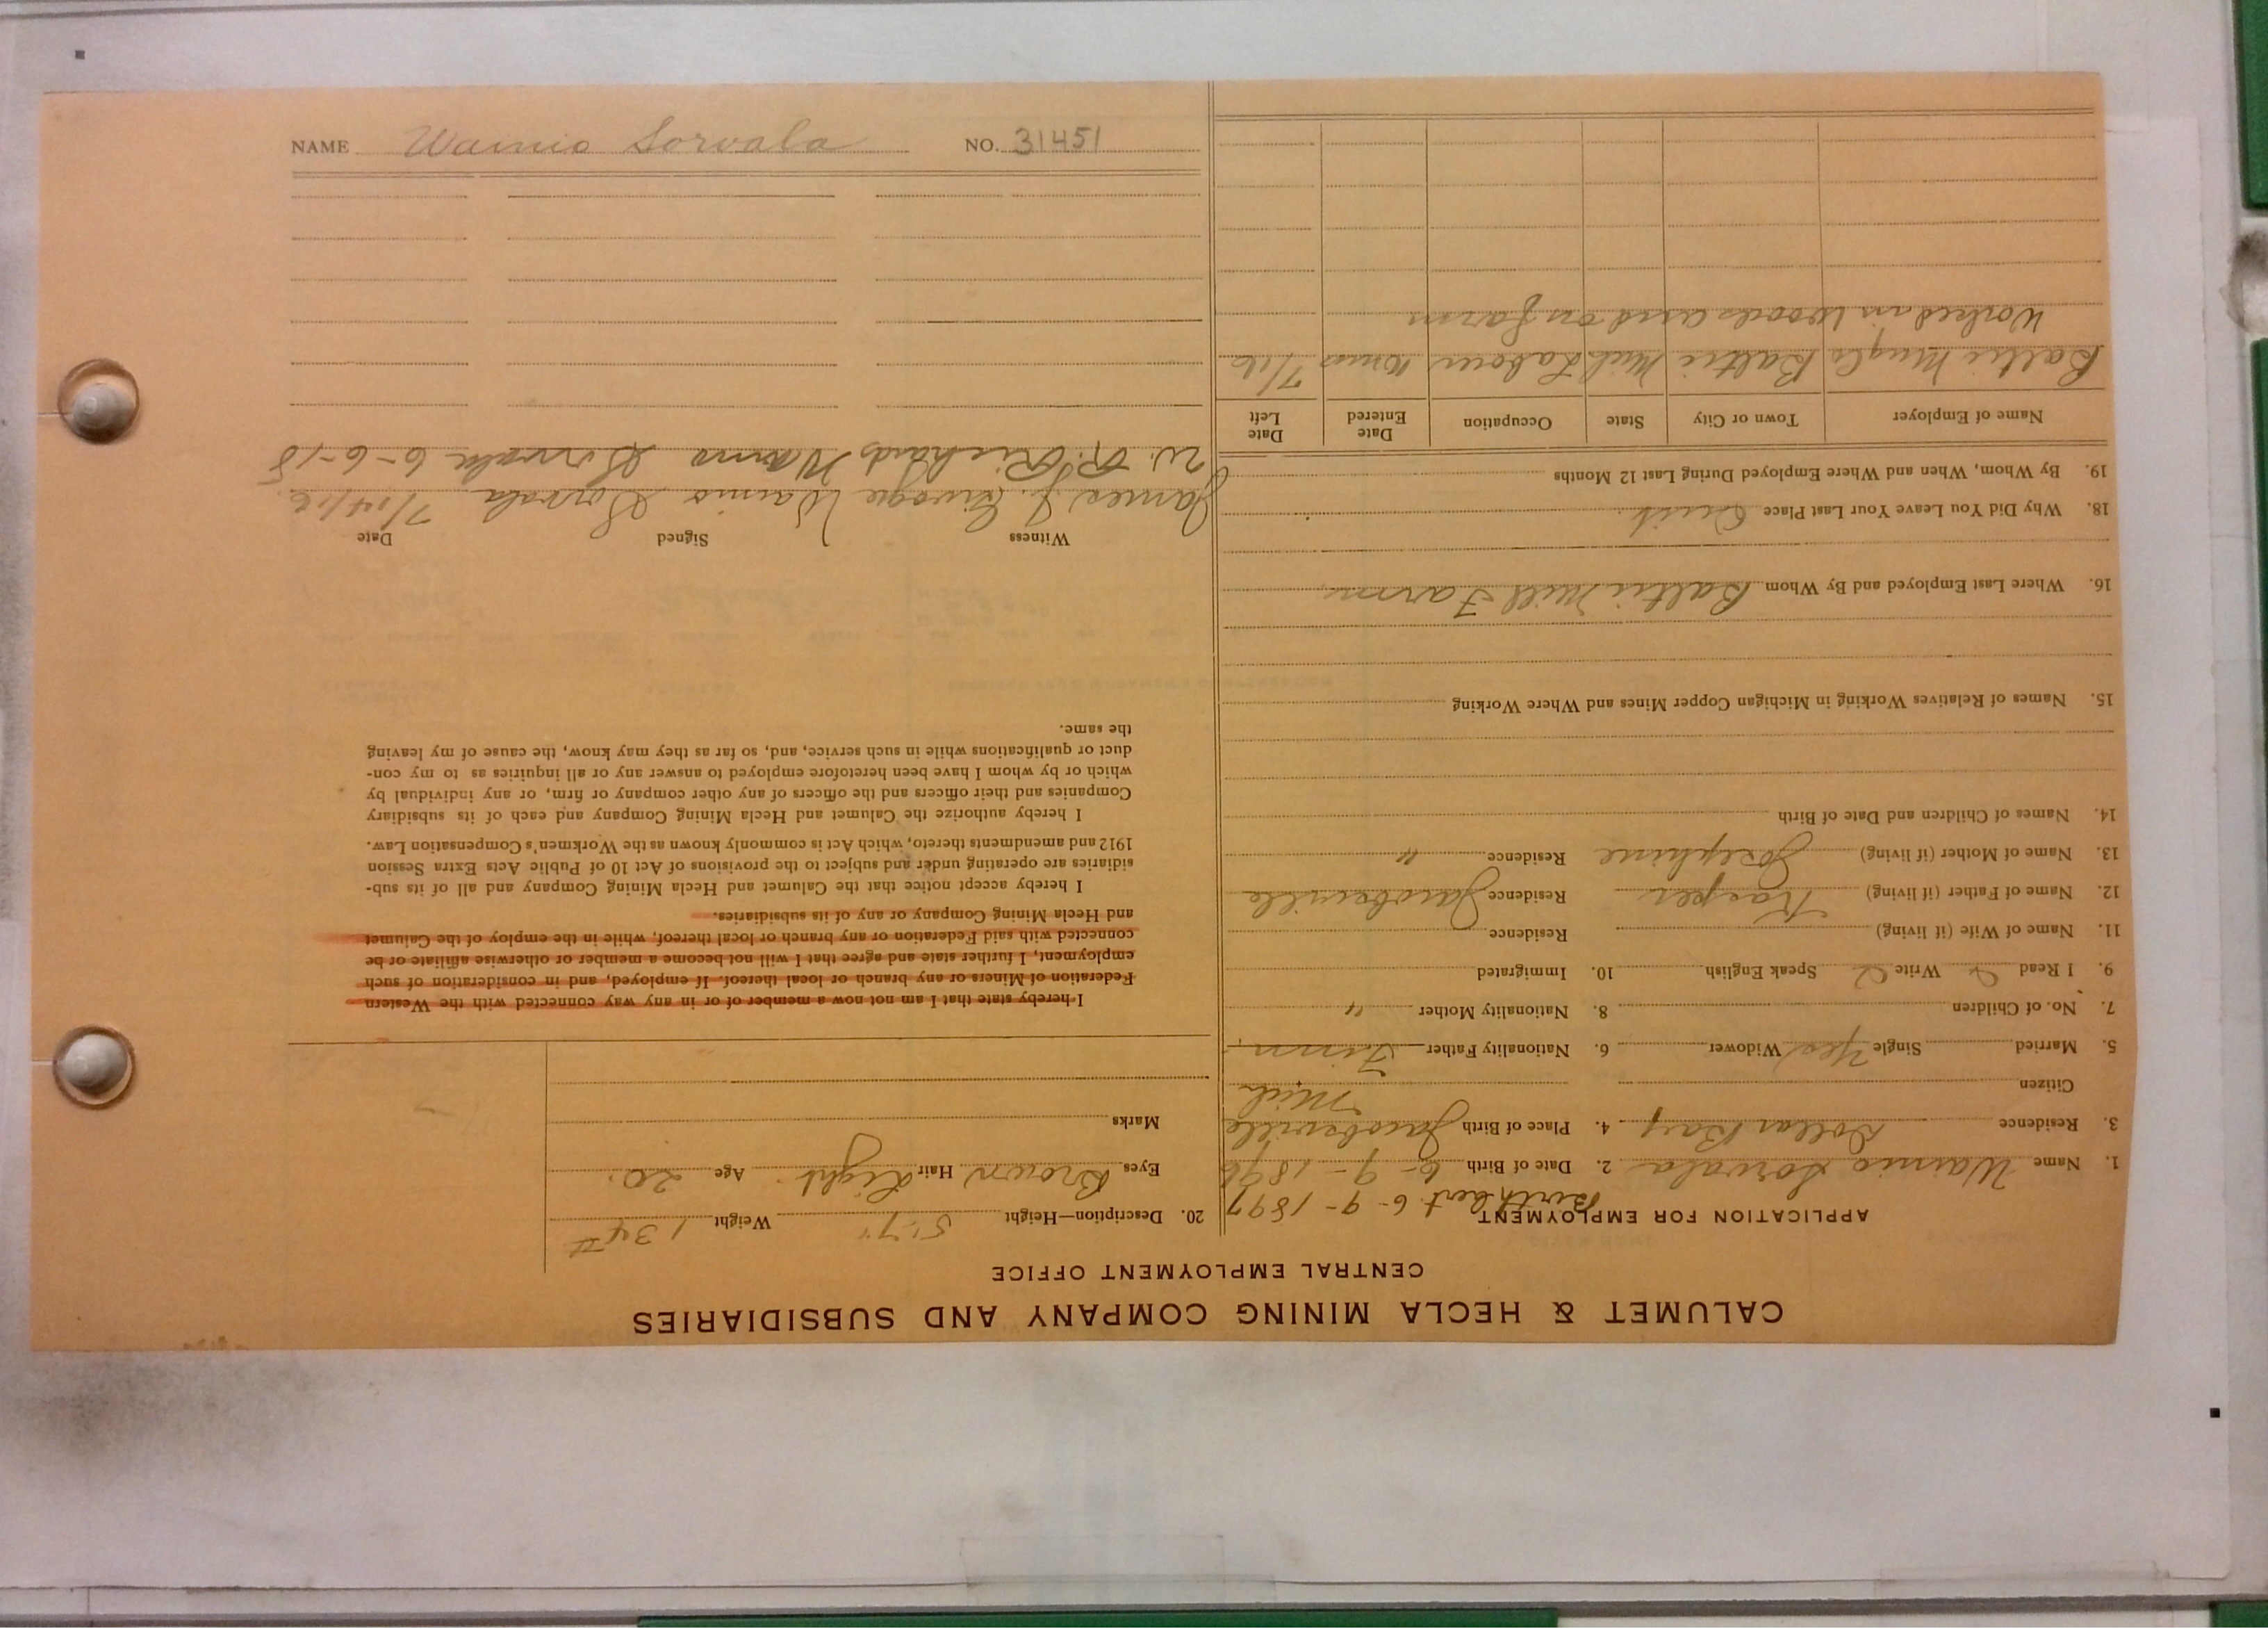 CALUMET & HECLA MINING COMPANY AND SUBSIDIARIES
CENTRAL EMPLOYMENT OFFICE
APPLICATION FOR EMPLOYMENT
Birth cert 6-9-1897
1. Name Wainio Sorvala 2. Date of Birth 6-9-1896
3. Residence Dollar Bay 4. Place of Birth Jacobsville
Mich
Citizen
5. Married Single Yes Widower 6. Nationality Father Finn
7. No. of Children 8. Nationality Mother "
9. I Read Write Speak English 10. Immigrated
11. Name of Wife (if living) Residence
12. Name of Father (if living) Kasper Residence Jacobsville
13. Name of Mother (if living) Josephine Residence "
14. Names of Children and Date of Birth
15. Names of Relatives Working in Michigan Copper Mines and Where Working
16. Where Last Employed and By Whom Baltic Mill Farm
18. Why Did You Leave Your Last Place Quit
19. By Whom, When and Where Employed During Last 12 Months
Name of Employer Town or City State Occupation Date Entered Date Left
Baltic Baltic Mich Labour 7/16
Worked in Woods and on farm
20. Description—Height 5'7" Weight 134#
Eyes Brown Hair Light Age 20
Marks
I hereby state that I am not now a member of or in any way connected with the Western
Federation of Miners or any branch or local thereof. If employed, and in consideration of such
employment, I further state and agree that I will not become a member or otherwise affiliate or be
connected with said Federation or any branch or local thereof, while in the employ of the Calumet
and Hecla Mining Company or any of its subsidiaries.
I hereby accept notice that the Calumet and Hecla Mining Company and all of its sub-
sidiaries are operating under and subject to the provisions of Act 10 of Public Acts Extra Session
1912 and amendments thereto, which Act is commonly known as the Workmen's Compensation Law.
I hereby authorize the Calumet and Hecla Mining Company and each of its subsidiary
Companies and their officers and the officers of any other company or firm, or any individual by
which or by whom I have been heretofore employed to answer any or all inquiries as to my con-
duct or qualifications while in such service, and, so far as they may know, the cause of my leaving
the same.
Witness Signed Date
James J. Wainio Sorvala 7/14/16
W. R. Richards Wainio Sorvala 6-6-18
NAME Wainio Sorvala NO. 31451